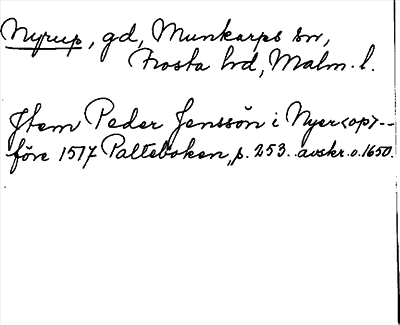 Nyrup, gd, Munkarps sn,
Frosta hd, Malm. l.
Jtem Peder Jenssön i Nyer<op>--
före 1517 Palteboken, p. 253. avskr. o. 1650.